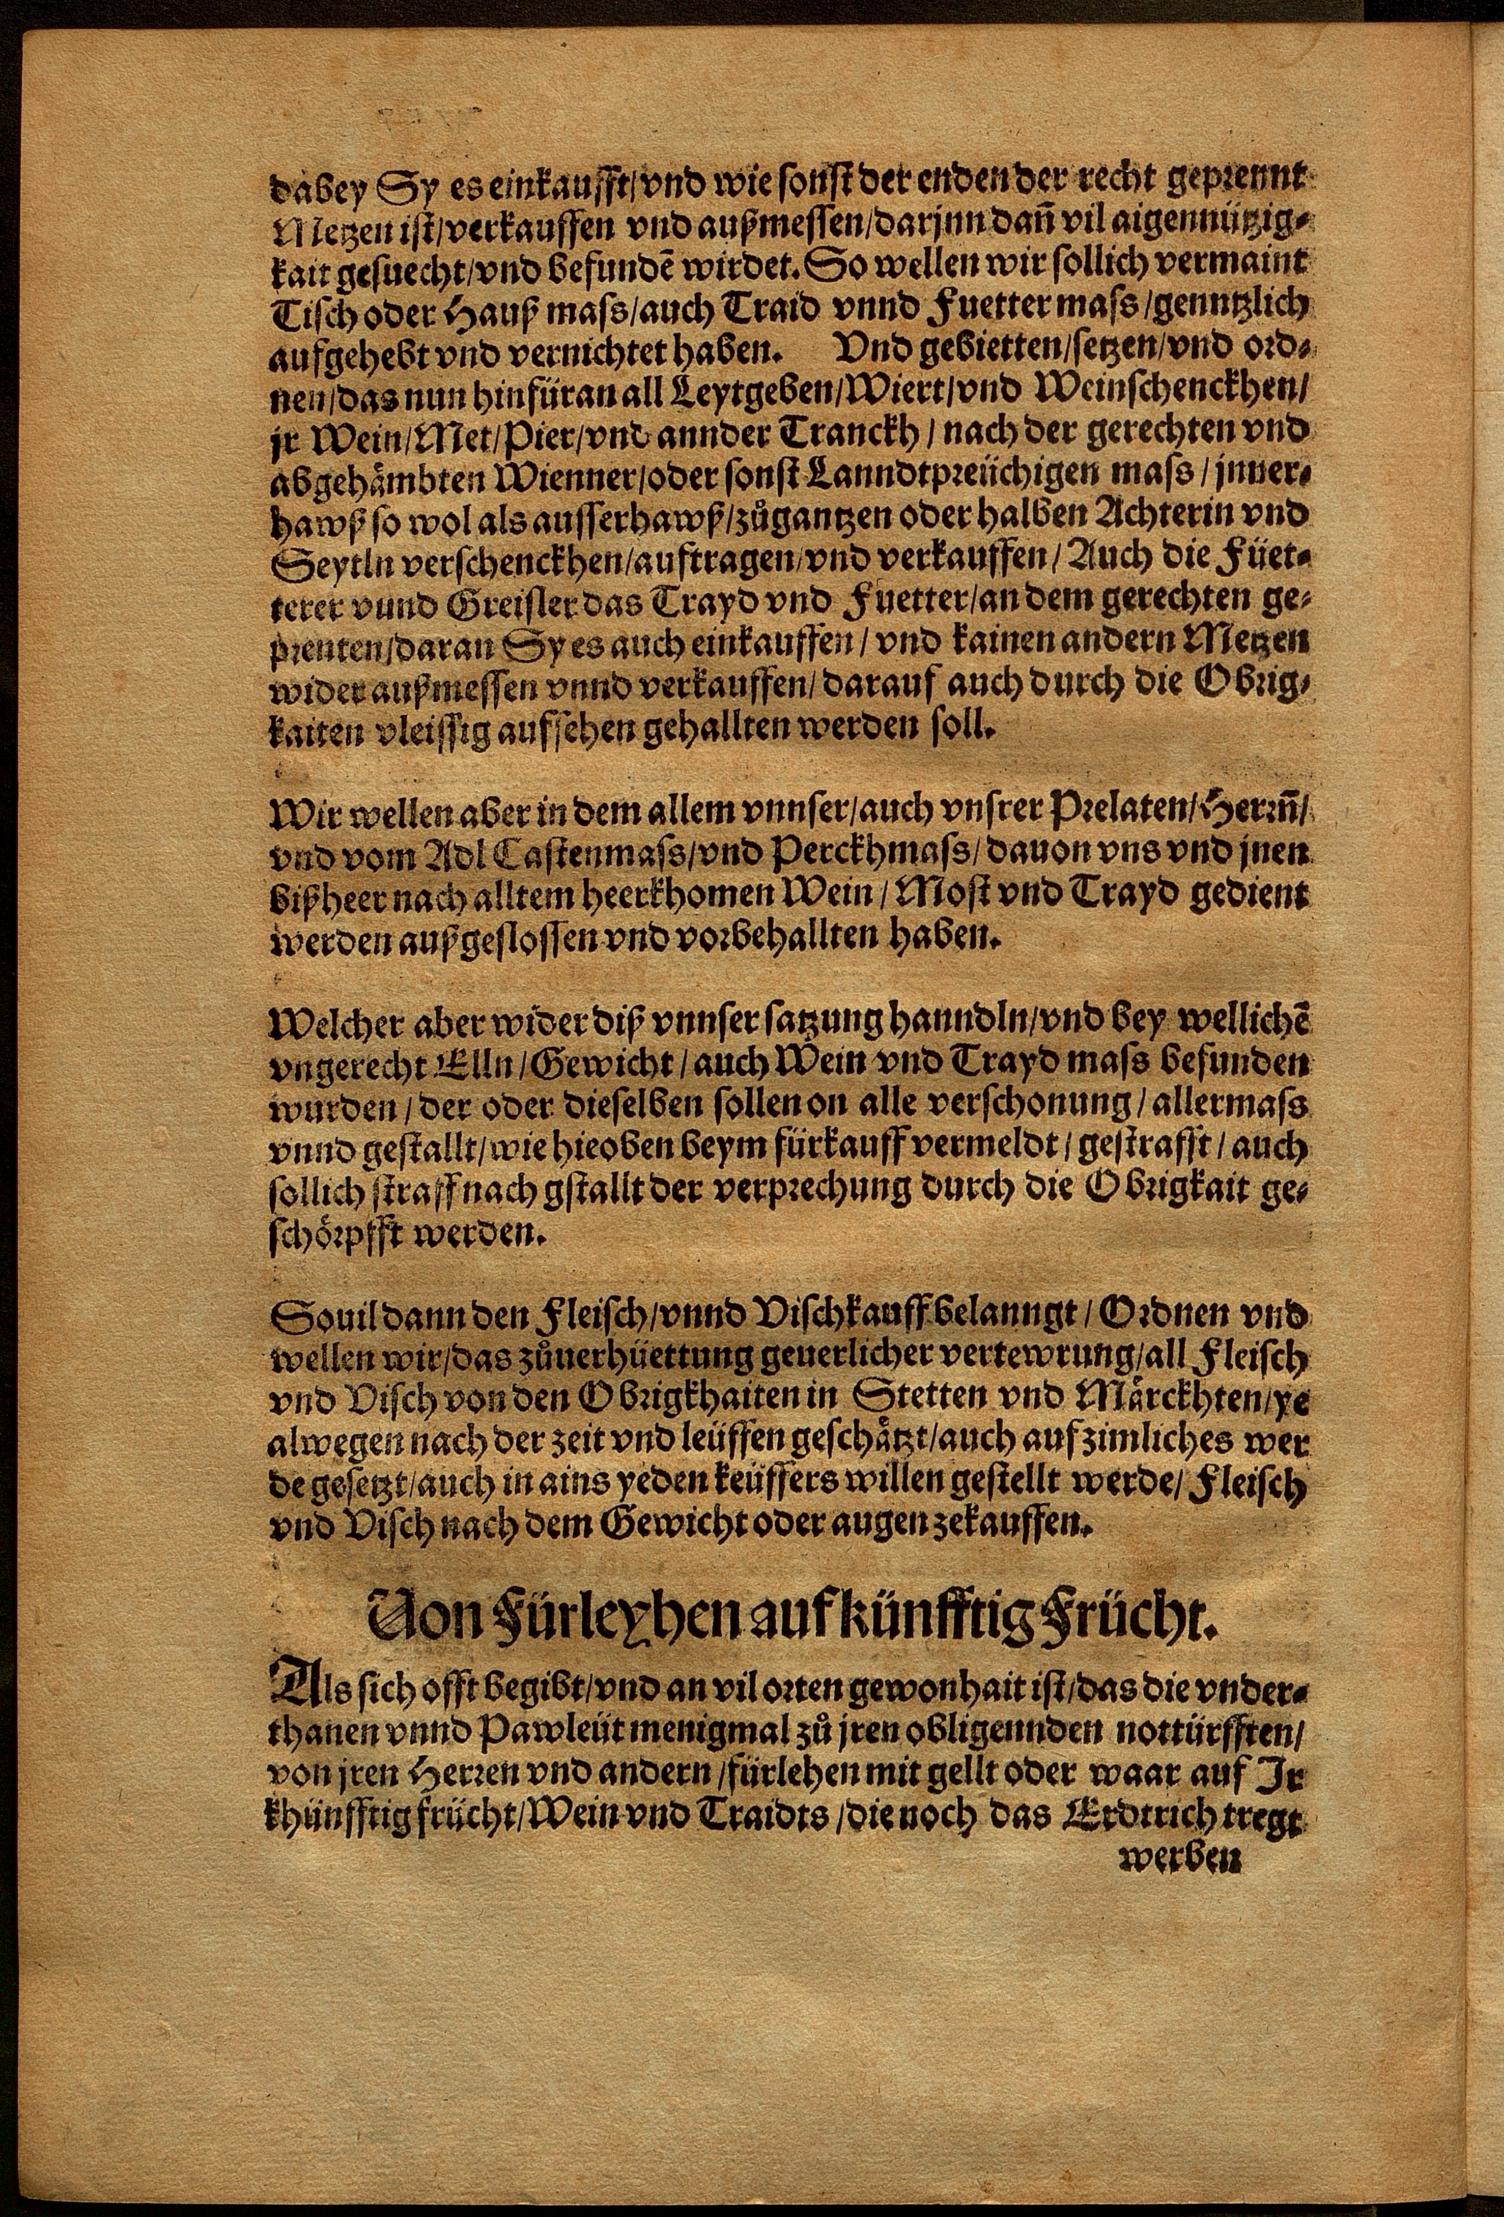 dabey Sy es einkaufft/vnd wie sonst der enden der recht geprennt
Metzen ist/verkauffen vnd außmessen/darjnn dañ vil aigennützig-
kait gesuecht/vnd befundē wirdet. So wellen wir sollich vermaint
Tisch oder Hauß mass/auch Traid vnnd Fuetter mass/genntzlich
aufgehebt vnd vernichtet haben. Vnd gebietten/setzen/vnd ord-
nen/das nun hinfüran all Leytgeben/Wiert/vnd Weinschenckhen/
jr Wein/Met/Pier/vnd annder Tranckh/nach der gerechten vnd
abgehåmbten Wienner/oder sonst Lanndtpreüchigen mass/jnner-
hawß so wol als ausserhawß/zů gantzen oder halben Achterin vnd
Seytln verschenckhen/auftragen/vnd verkauffen/Auch die Füet-
terer vnnd Greisler das Trayd vnd Fuetter/an dem gerechten ge-
prenten/daran Sy es auch einkauffen/vnd kainen andern Metzen
wider außmessen vnnd verkauffen/darauf auch durch die Obrig-
kaiten vleissig aufsehen gehallten werden soll.
Wir wellen aber in dem allem vnnser/auch vnsrer Prelaten/Herrñ/
vnd vom Adl Castenmass/vnd Perckhmass/dauon vns vnd jnen
bißheer nach alltem heerkhomen Wein/Most vnd Trayd gedient
werden außgeslossen vnd vorbehallten haben.
Welcher aber wider diß vnnser satzung hanndln/vnd bey wellichē
vngerecht Elln/Gewicht/auch Wein vnd Trayd mass befunden
wurden/der oder dieselben sollen on alle verschonung/allermass
vnnd gestallt/wie hieoben beym fürkauff vermeldt/gestrafft/auch
sollich straff nach gstallt der verprechung durch die Obrigkait ge-
schörpfft werden.
Souil dann den Fleisch/vnnd Vischkauff belanngt/Ordnen vnd
wellen wir/das zůuerhüettung geuerlicher vertewrung/all Fleisch
vnd Visch von den Obrigkhaiten in Stetten vnd Mårckhten/ye
alwegen nach der zeit vnd leüffen geschåtzt/auch auf zimliches wer
de gesetzt/auch in ains yeden keüffers willen gestellt werde/Fleisch
vnd Visch nach dem Gewicht oder augen zekauffen.
Von Fürleyhen auf künfftig Frücht.
Als sich offt begibt/vnd an vil orten gewonhait ist/das die vnder-
thanen vnnd Pawleüt menigmal zů jren obligennden nottürfften/
von jren Herren vnd andern/fürlehen mit gellt oder waar auf Jr
khünfftig frücht/Wein vnd Traidts/die noch das Erdtrich tregt
werben